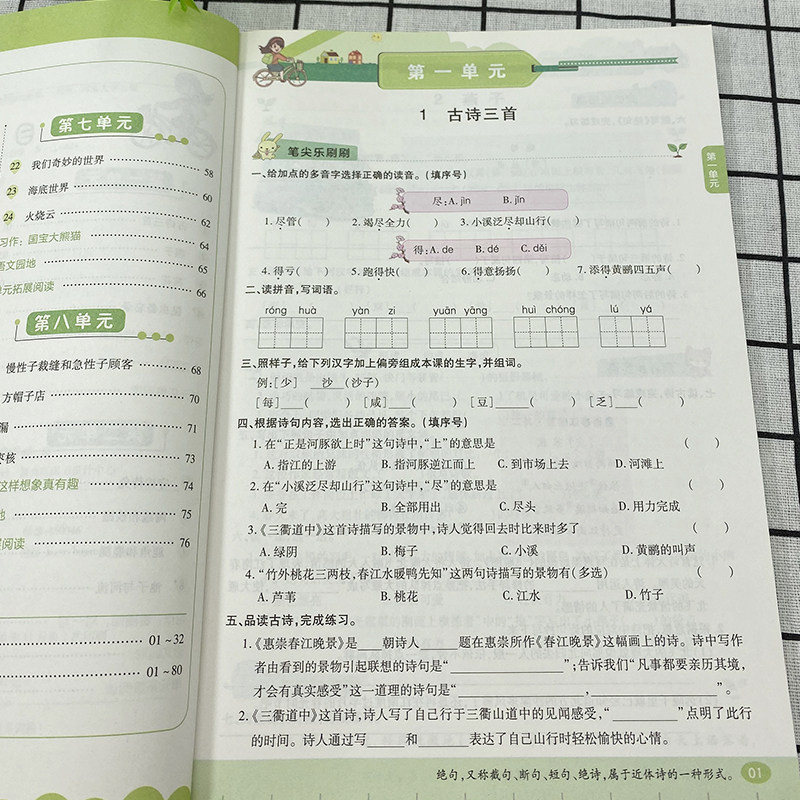 第七单元
22 我们奇妙的世界 58
23 海底世界 60
24 火烧云 62
习作:国宝大熊猫 64
语文园地 65
单元拓展阅读 66
第八单元
慢性子裁缝和急性子顾客 68
方帽子店 70
漏 71
枣核 73
这样想象真有趣 74
地 75
阅读 76
01~32
01~80
第一单元
1 古诗三首
第一单元
笔尖乐刷刷
一、给加点的多音字选择正确的读音。(填序号)
尽:A. jìn B. jǐn
1. 尽管( ) 2. 竭尽全力( ) 3. 小溪泛尽却山行( )
得:A. de B. dé C. děi
4. 得亏( ) 5. 跑得快( ) 6. 得意扬扬( ) 7. 添得黄鹂四五声( )
二、读拼音,写词语。
róng huà yàn zi yuān yāng huì chóng lú yá
三、照样子,给下列汉字加上偏旁组成本课的生字,并组词。
例:[少] 沙 (沙子)
[每]___( ) [咸]___( ) [豆]___( ) [乏]___( )
四、根据诗句内容,选出正确的答案。(填序号)
1. 在“正是河豚欲上时”这句诗中,“上”的意思是 ( )
A. 指江的上游 B. 指河豚逆江而上 C. 到市场上去 D. 河滩上
2. 在“小溪泛尽却山行”这句诗中,“尽”的意思是 ( )
A. 完 B. 全部用出 C. 尽头 D. 用力完成
3.《三衢道中》这首诗描写的景物中,诗人觉得回去时比来时多了 ( )
A. 绿阴 B. 梅子 C. 小溪 D. 黄鹂的叫声
4.“竹外桃花三两枝,春江水暖鸭先知”这两句诗描写的景物有(多选) ( )
A. 芦苇 B. 桃花 C. 江水 D. 竹子
五、品读古诗,完成练习。
1.《惠崇春江晚景》是___朝诗人____题在惠崇所作《春江晚景》这幅画上的诗。诗中写作
者由看到的景物引起联想的诗句是“____________”;告诉我们“凡事都要亲历其境,
才会有真实感受”这一道理的诗句是“____________,____________”。
2.《三衢道中》这首诗,诗人写了自己行于三衢山道中的见闻感受,“________”点明了此行
的时间。诗人通过写____和____表达了自己山行时轻松愉快的心情。
绝句,又称截句、断句、短句、绝诗,属于近体诗的一种形式。 01